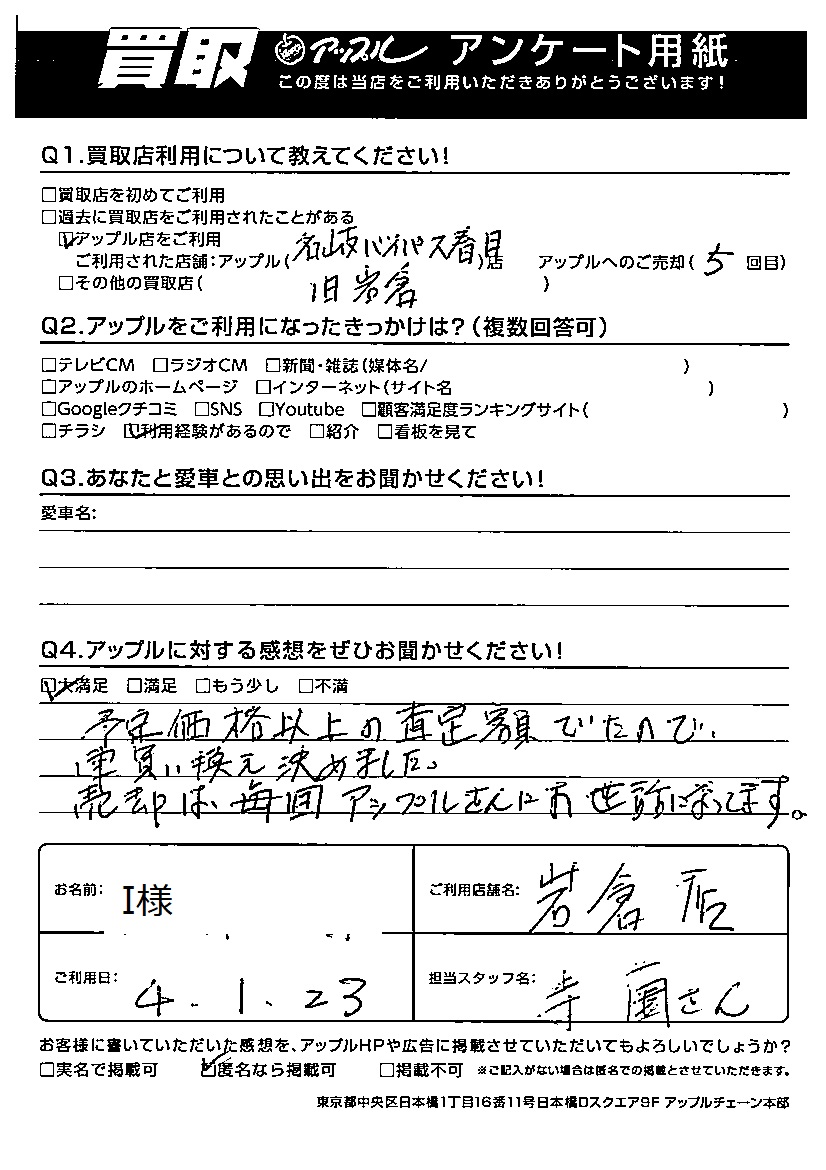 買取 アップル アンケート用紙
この度は当店をご利用いただきありがとうございます!
Q1.買取店利用について教えてください!
□買取店を初めてご利用
□過去に買取店をご利用されたことがある
☑アップル店をご利用
ご利用された店舗:アップル(名岐バイパス春日)店 アップルへのご売却(5回目)
旧岩倉
□その他の買取店( )
Q2.アップルをご利用になったきっかけは?(複数回答可)
□テレビCM □ラジオCM □新聞・雑誌(媒体名/ )
□アップルのホームページ □インターネット(サイト名 )
□Googleクチコミ □SNS □Youtube □顧客満足度ランキングサイト( )
□チラシ ☑利用経験があるので □紹介 □看板を見て
Q3.あなたと愛車との思い出をお聞かせください!
愛車名:
Q4.アップルに対する感想をぜひお聞かせください!
☑大満足 □満足 □もう少し □不満
予定価格以上の査定額でたので、
車買い換え決めました。
売却は、毎回アップルさんにお世話になってます。
お名前: I様 ご利用店舗名: 岩倉店
ご利用日: 4.1.23 担当スタッフ名: 寺薗さん
お客様に書いていただいた感想を、アップルHPや広告に掲載させていただいてもよろしいでしょうか?
□実名で掲載可 ☑匿名なら掲載可 □掲載不可 ※ご記入がない場合は匿名での掲載とさせていただきます。
東京都中央区日本橋1丁目16番11号日本橋Dスクエア9F アップルチェーン本部